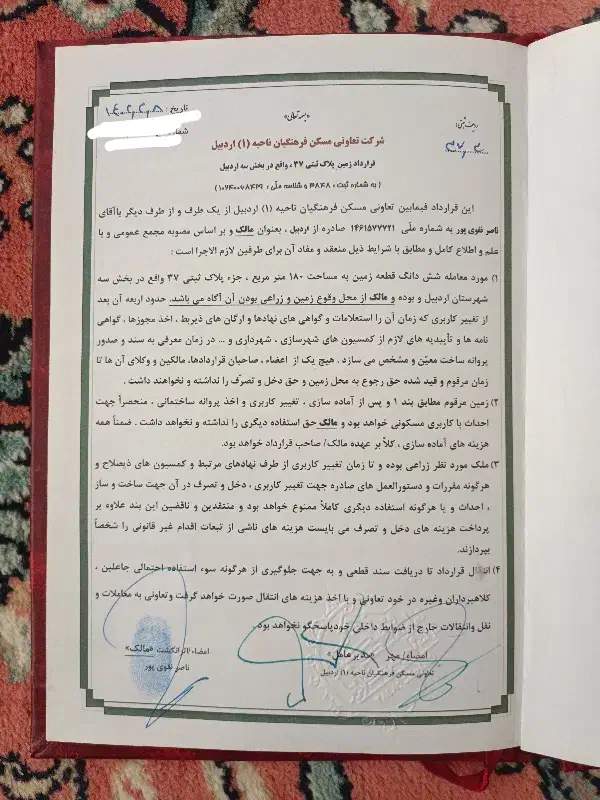 «بسمه تعالی»
تاریخ :
ردیف ثبتی:
شرکت تعاونی مسکن فرهنگیان ناحیه (۱) اردبیل
قرارداد زمین پلاک ثبتی ۳۷ ، واقع در بخش سه اردبیل
این قرارداد فیمابین تعاونی مسکن فرهنگیان ناحیه (۱) اردبیل از یک طرف و از طرف دیگر باآقای
ناصر نقوی پور به شماره ملّی ۱۴۶۱۵۷۷۷۲۱ صادره از اردبیل ، بعنوان مالک و بر اساس مصوبه مجمع عمومی و با
علم و اطلاع کامل و مطابق با شرایط ذیل منعقد و مفاد آن برای طرفین لازم الاجرا است :
۱) مورد معامله شش دانگ قطعه زمین به مساحت ۱۸۰ متر مربع ، جزء پلاک ثبتی ۳۷ واقع در بخش سه
شهرستان اردبیل و بوده و مالک از محل وقوع زمین و زراعی بودن آن آگاه می باشد. حدود اربعه آن بعد
از تغییر کاربری که زمان آن را استعلامات و گواهی های نهادها و ارگان های ذیربط ، اخذ مجوزها ، گواهی
نامه ها و تأییدیه های لازم از کمسیون های شهرسازی ، شهرداری و ... در زمان معرفی به سند و صدور
پروانه ساخت معیّن و مشخص می سازد . هیچ یک از اعضاء ، صاحبان قراردادها، مالکین و وکلای آن ها تا
زمان مرقوم و قید شده حق رجوع به محل زمین و حق دخل و تصرّف را نداشته و نخواهند داشت .
۲) زمین مرقوم مطابق بند ۱ و پس از آماده سازی ، تغییر کاربری و اخذ پروانه ساختمانی ، منحصراً جهت
احداث با کاربری مسکونی خواهد بود و مالک حق استفاده دیگری را نداشته و نخواهد داشت . ضمناً همه
هزینه های آماده سازی ، کلاً بر عهده مالک/ صاحب قرارداد خواهد بود.
۳) ملک مورد نظر زراعی بوده و تا زمان تغییر کاربری از طرف نهادهای مرتبط و کمسیون های ذیصلاح و
هرگونه مقررات و دستورالعمل های صادره جهت تغییر کاربری ، دخل و تصرف در آن جهت ساخت و ساز
، احداث و یا هرگونه استفاده دیگری کاملاً ممنوع خواهد بود و منتقدین و ناقضین این بند علاوه بر
پرداخت هزینه های دخل و تصرف می بایست هزینه های ناشی از تبعات اقدام غیر قانونی را شخصاً
بپردازند.
۴) انتقال قرارداد تا دریافت سند قطعی و به جهت جلوگیری از هرگونه سوء استفاده احتمالی جاعلین ،
کلاهبرداران وغیره در خود تعاونی و با اخذ هزینه های انتقال صورت خواهد گرفت وتعاونی به معاملات و
نقل وانتقالات خارج از ضوابط داخلی خودپاسخگو نخواهد بود.
امضاء/ مهر «مدیرعامل»
تعاونی مسکن فرهنگیان ناحیه (۱) اردبیل
امضاء/اثرانگشت «مالک»
ناصر نقوی پور